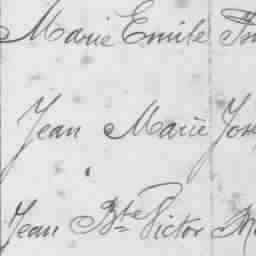 Marie Emile
Jean Marie Jos
Jean Bte Victor